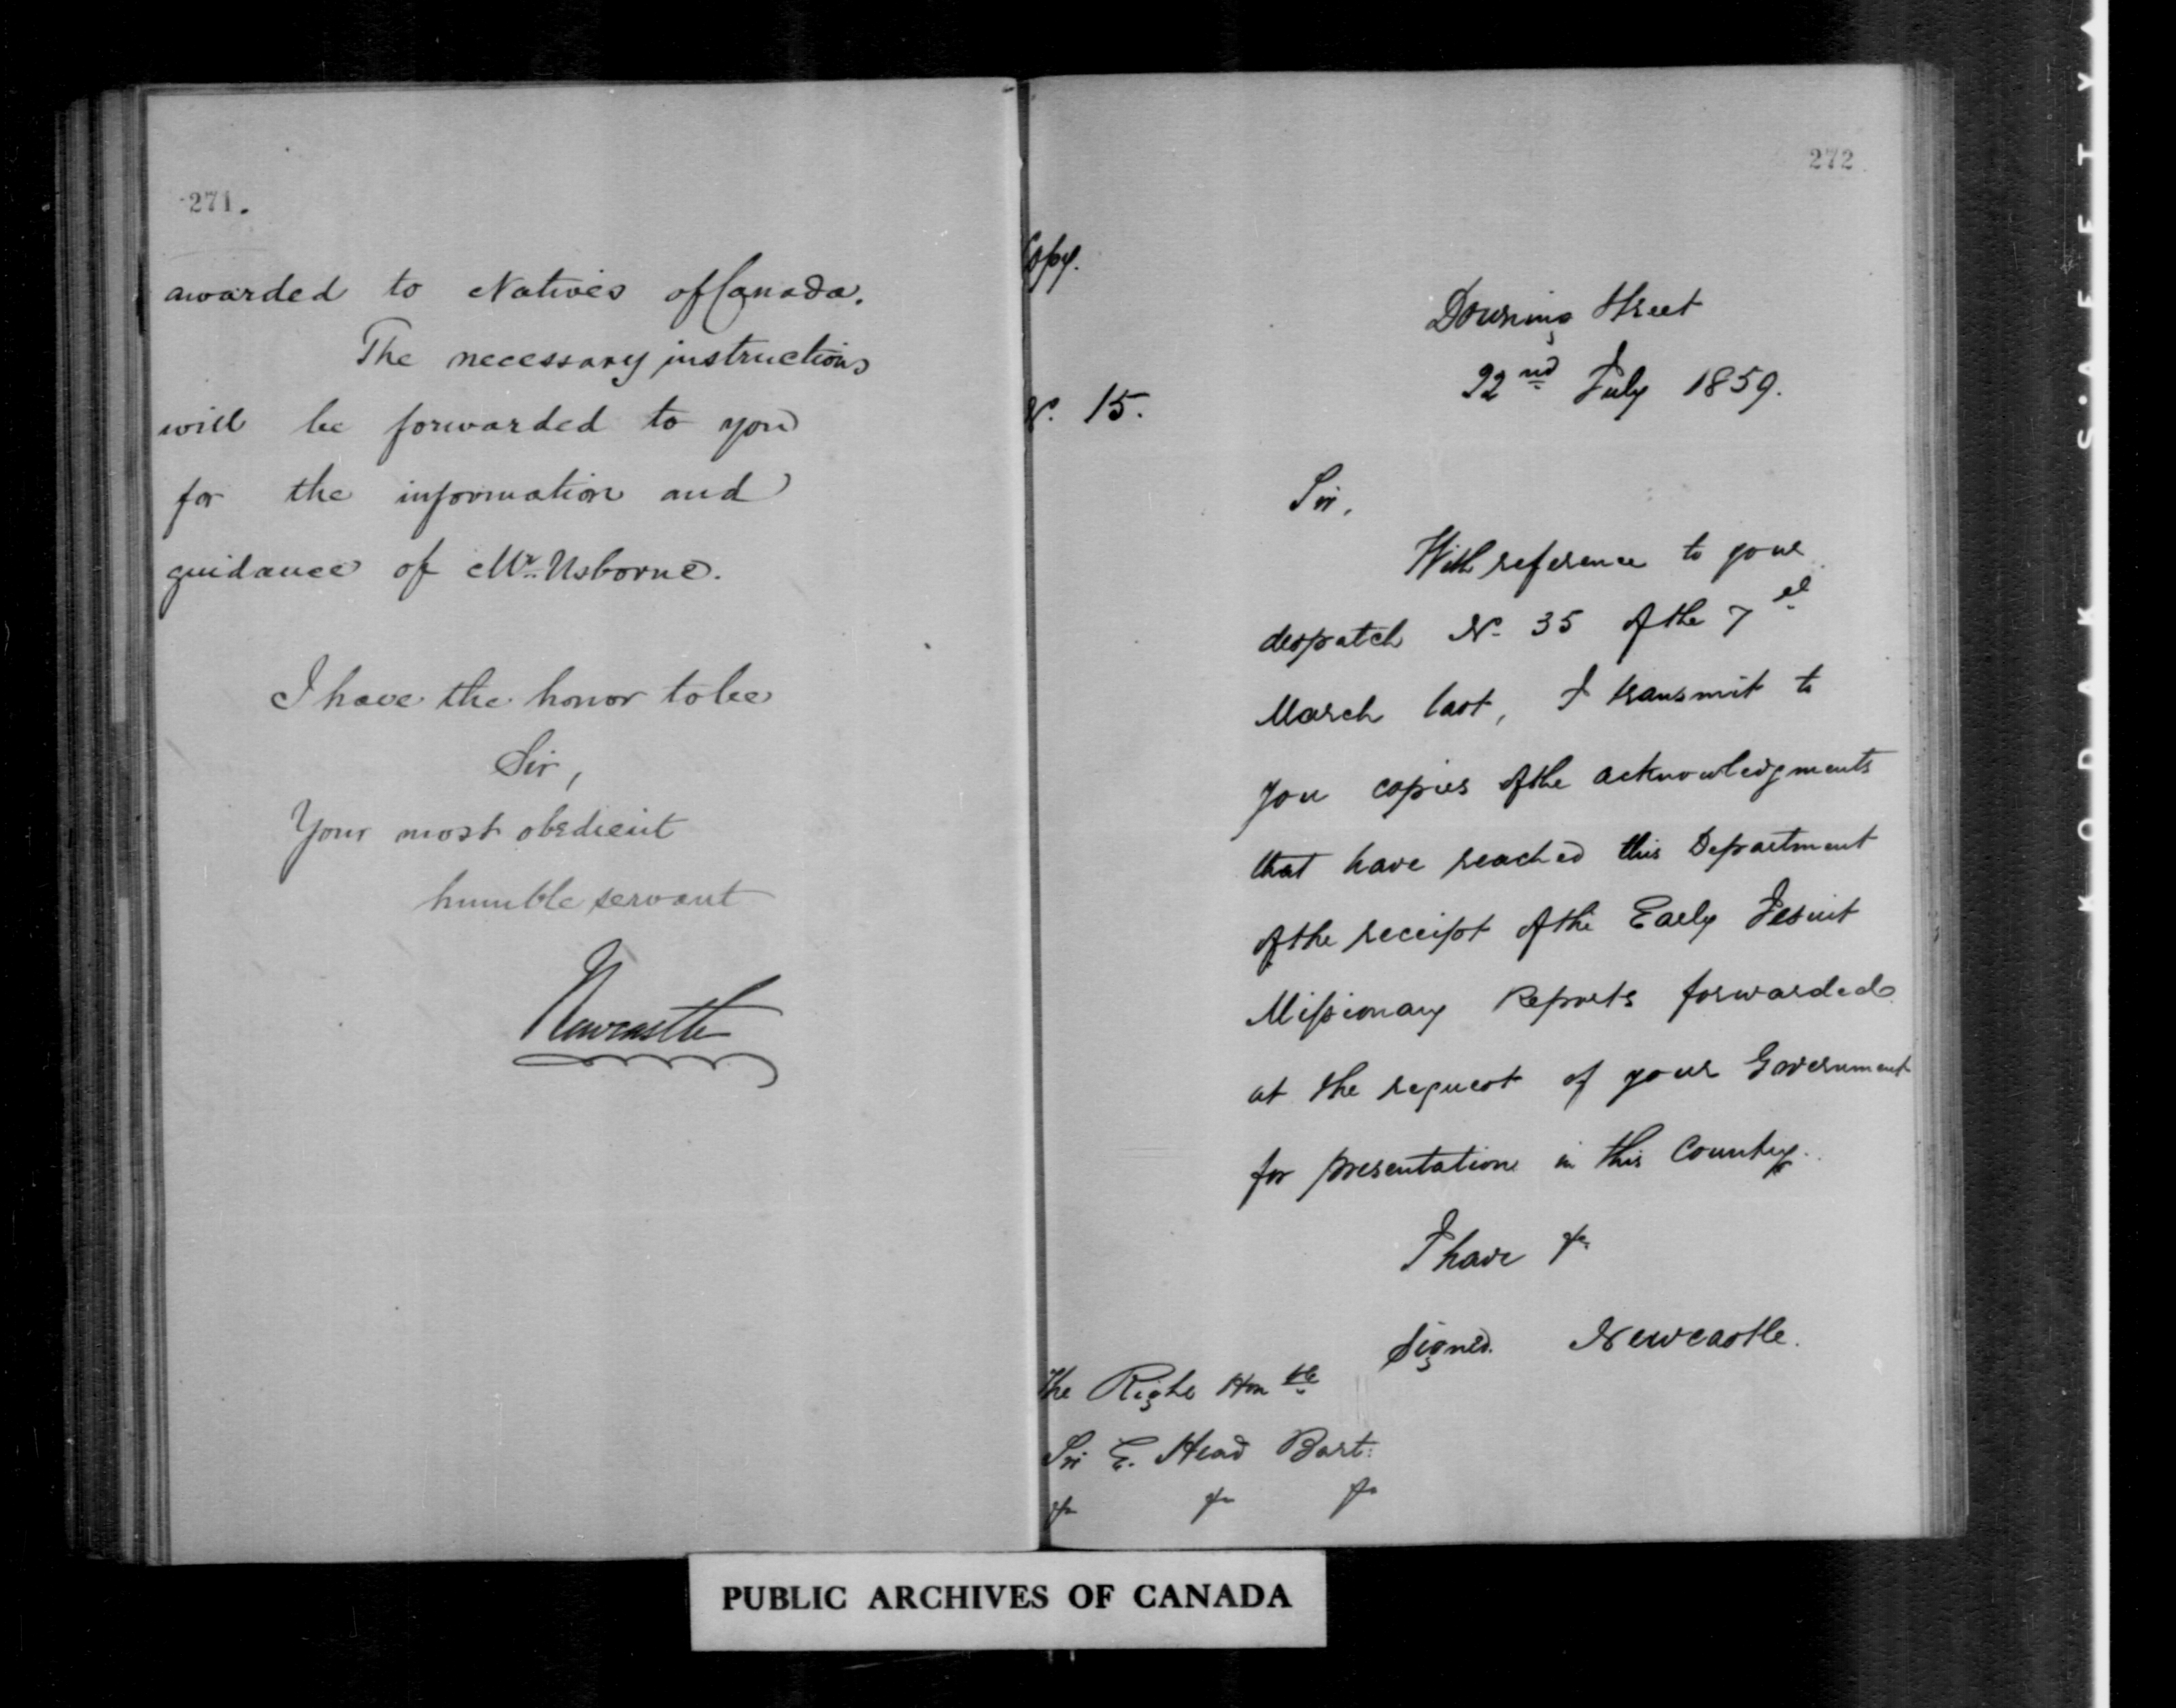 271.
awarded to Natives of Canada.
The necessary instructions
will be forwarded to you
for the information and
guidance of Mr. Usborne.
I have the honor to be
Sir,
Your most obedient
humble servant
Newcastle
272
Copy.
N. 15.
Downing Street
22nd July 1859.
Sir,
With reference to your
despatch No. 35 of the 7th
March last, I transmit to
you copies of the acknowledgments
that have reached this Department
of the receipt of the Early Jesuit
Missionary Reports forwarded
at the request of your Government
for presentation in this Country.
I have &c
Signed. Newcastle.
The Right Honble
Sir E. Head Bart:
&c &c &c
PUBLIC ARCHIVES OF CANADA
KODAK S'AFETY